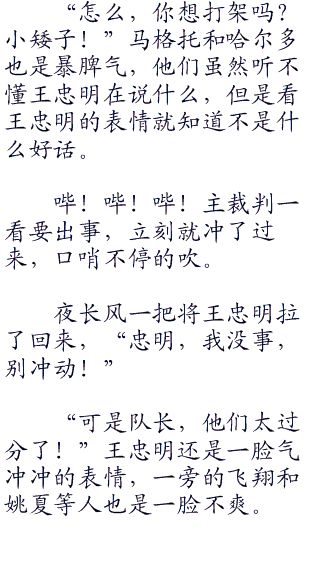 “怎么，你想打架吗？
小矮子！”马格托和哈尔多
也是暴脾气，他们虽然听不
懂王忠明在说什么，但是看
王忠明的表情就知道不是什
么好话。
哔！哔！哔！主裁判一
看要出事，立刻就冲了过
来，口哨不停的吹。
夜长风一把将王忠明拉
了回来，“忠明，我没事，
别冲动！”
“可是队长，他们太过
分了！”王忠明还是一脸气
冲冲的表情，一旁的飞翔和
姚夏等人也是一脸不爽。